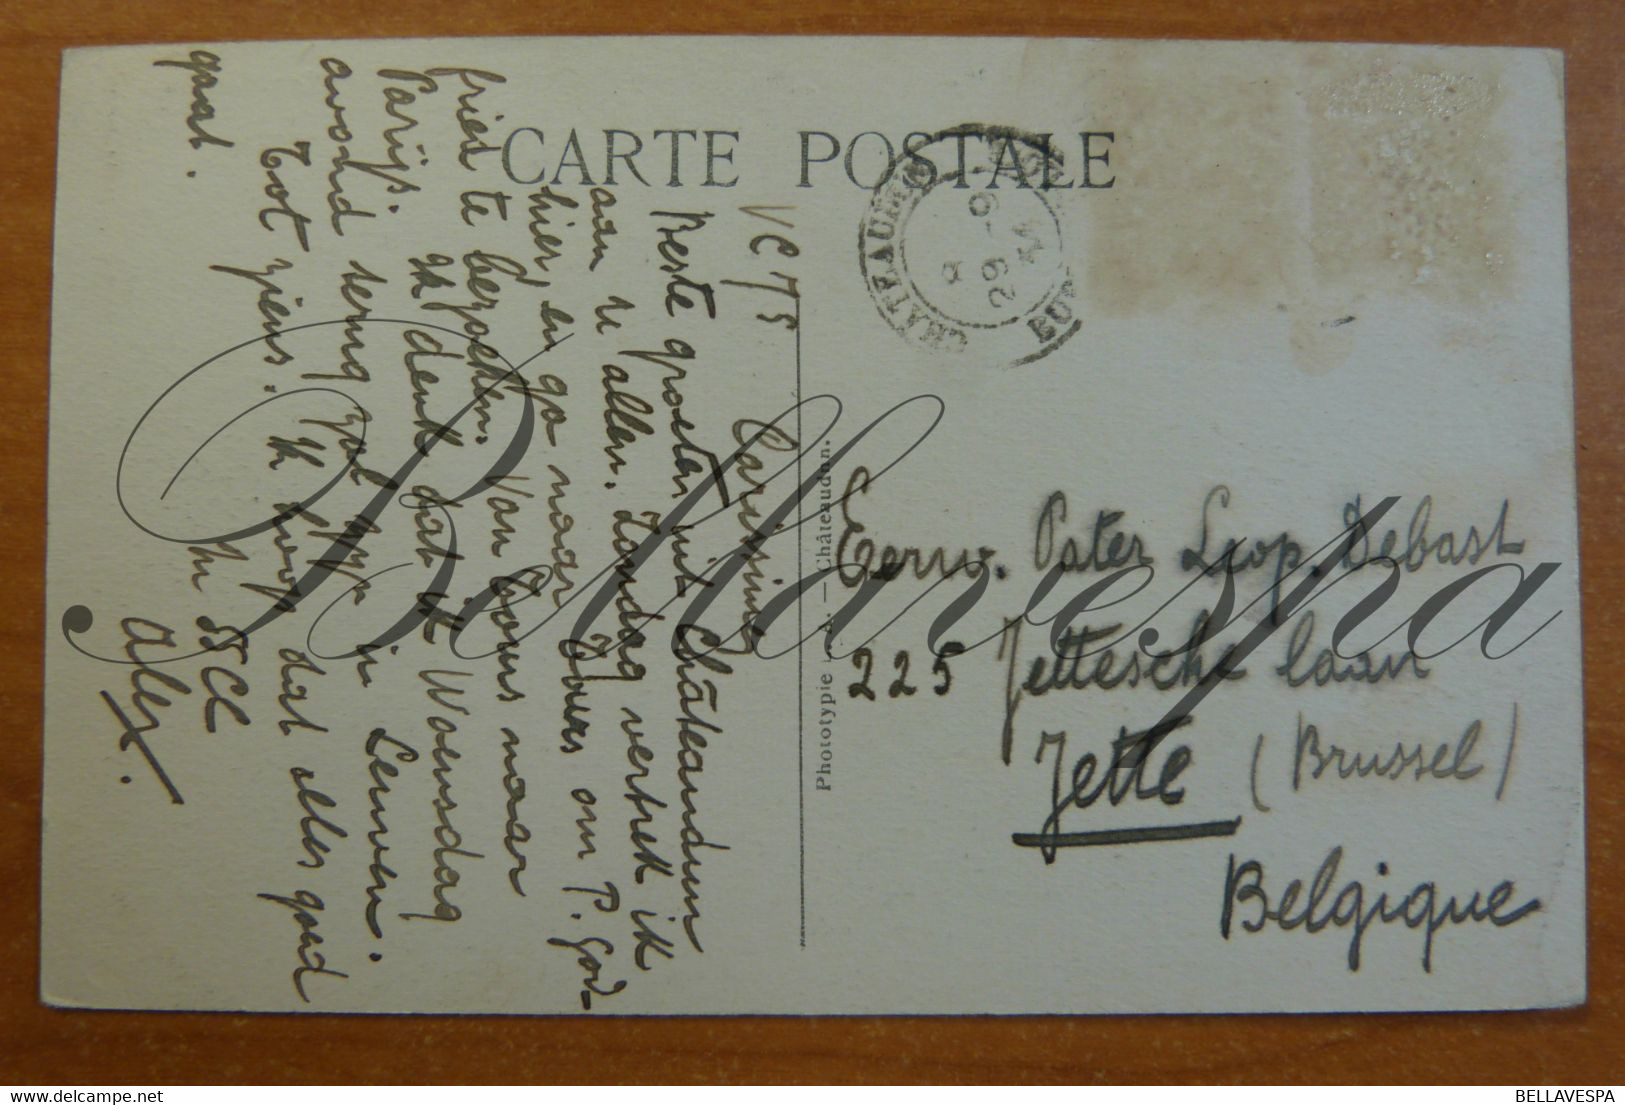 CARTE POSTALE
VC JS
Carissime
Beste groeten uit Châteaudun
aan u allen. Zondag vertrek ik
hier, en ga naar Tours om P. God-
fried te bezoeken. Van Tours naar
Parijs. Ik denk dat ik Woensdag
avond terug zal zijn in Leuven.
Tot ziens. Ik hoop dat alles goed
gaat.
In SSCC
Alex.
Phototypie — Châteaudun.
CHATEAUDUN
Eerw. Pater Leop. Debast
225 Jettesche laan
Jette (Brussel)
Belgique
Bellavespa
BELLAVESPA